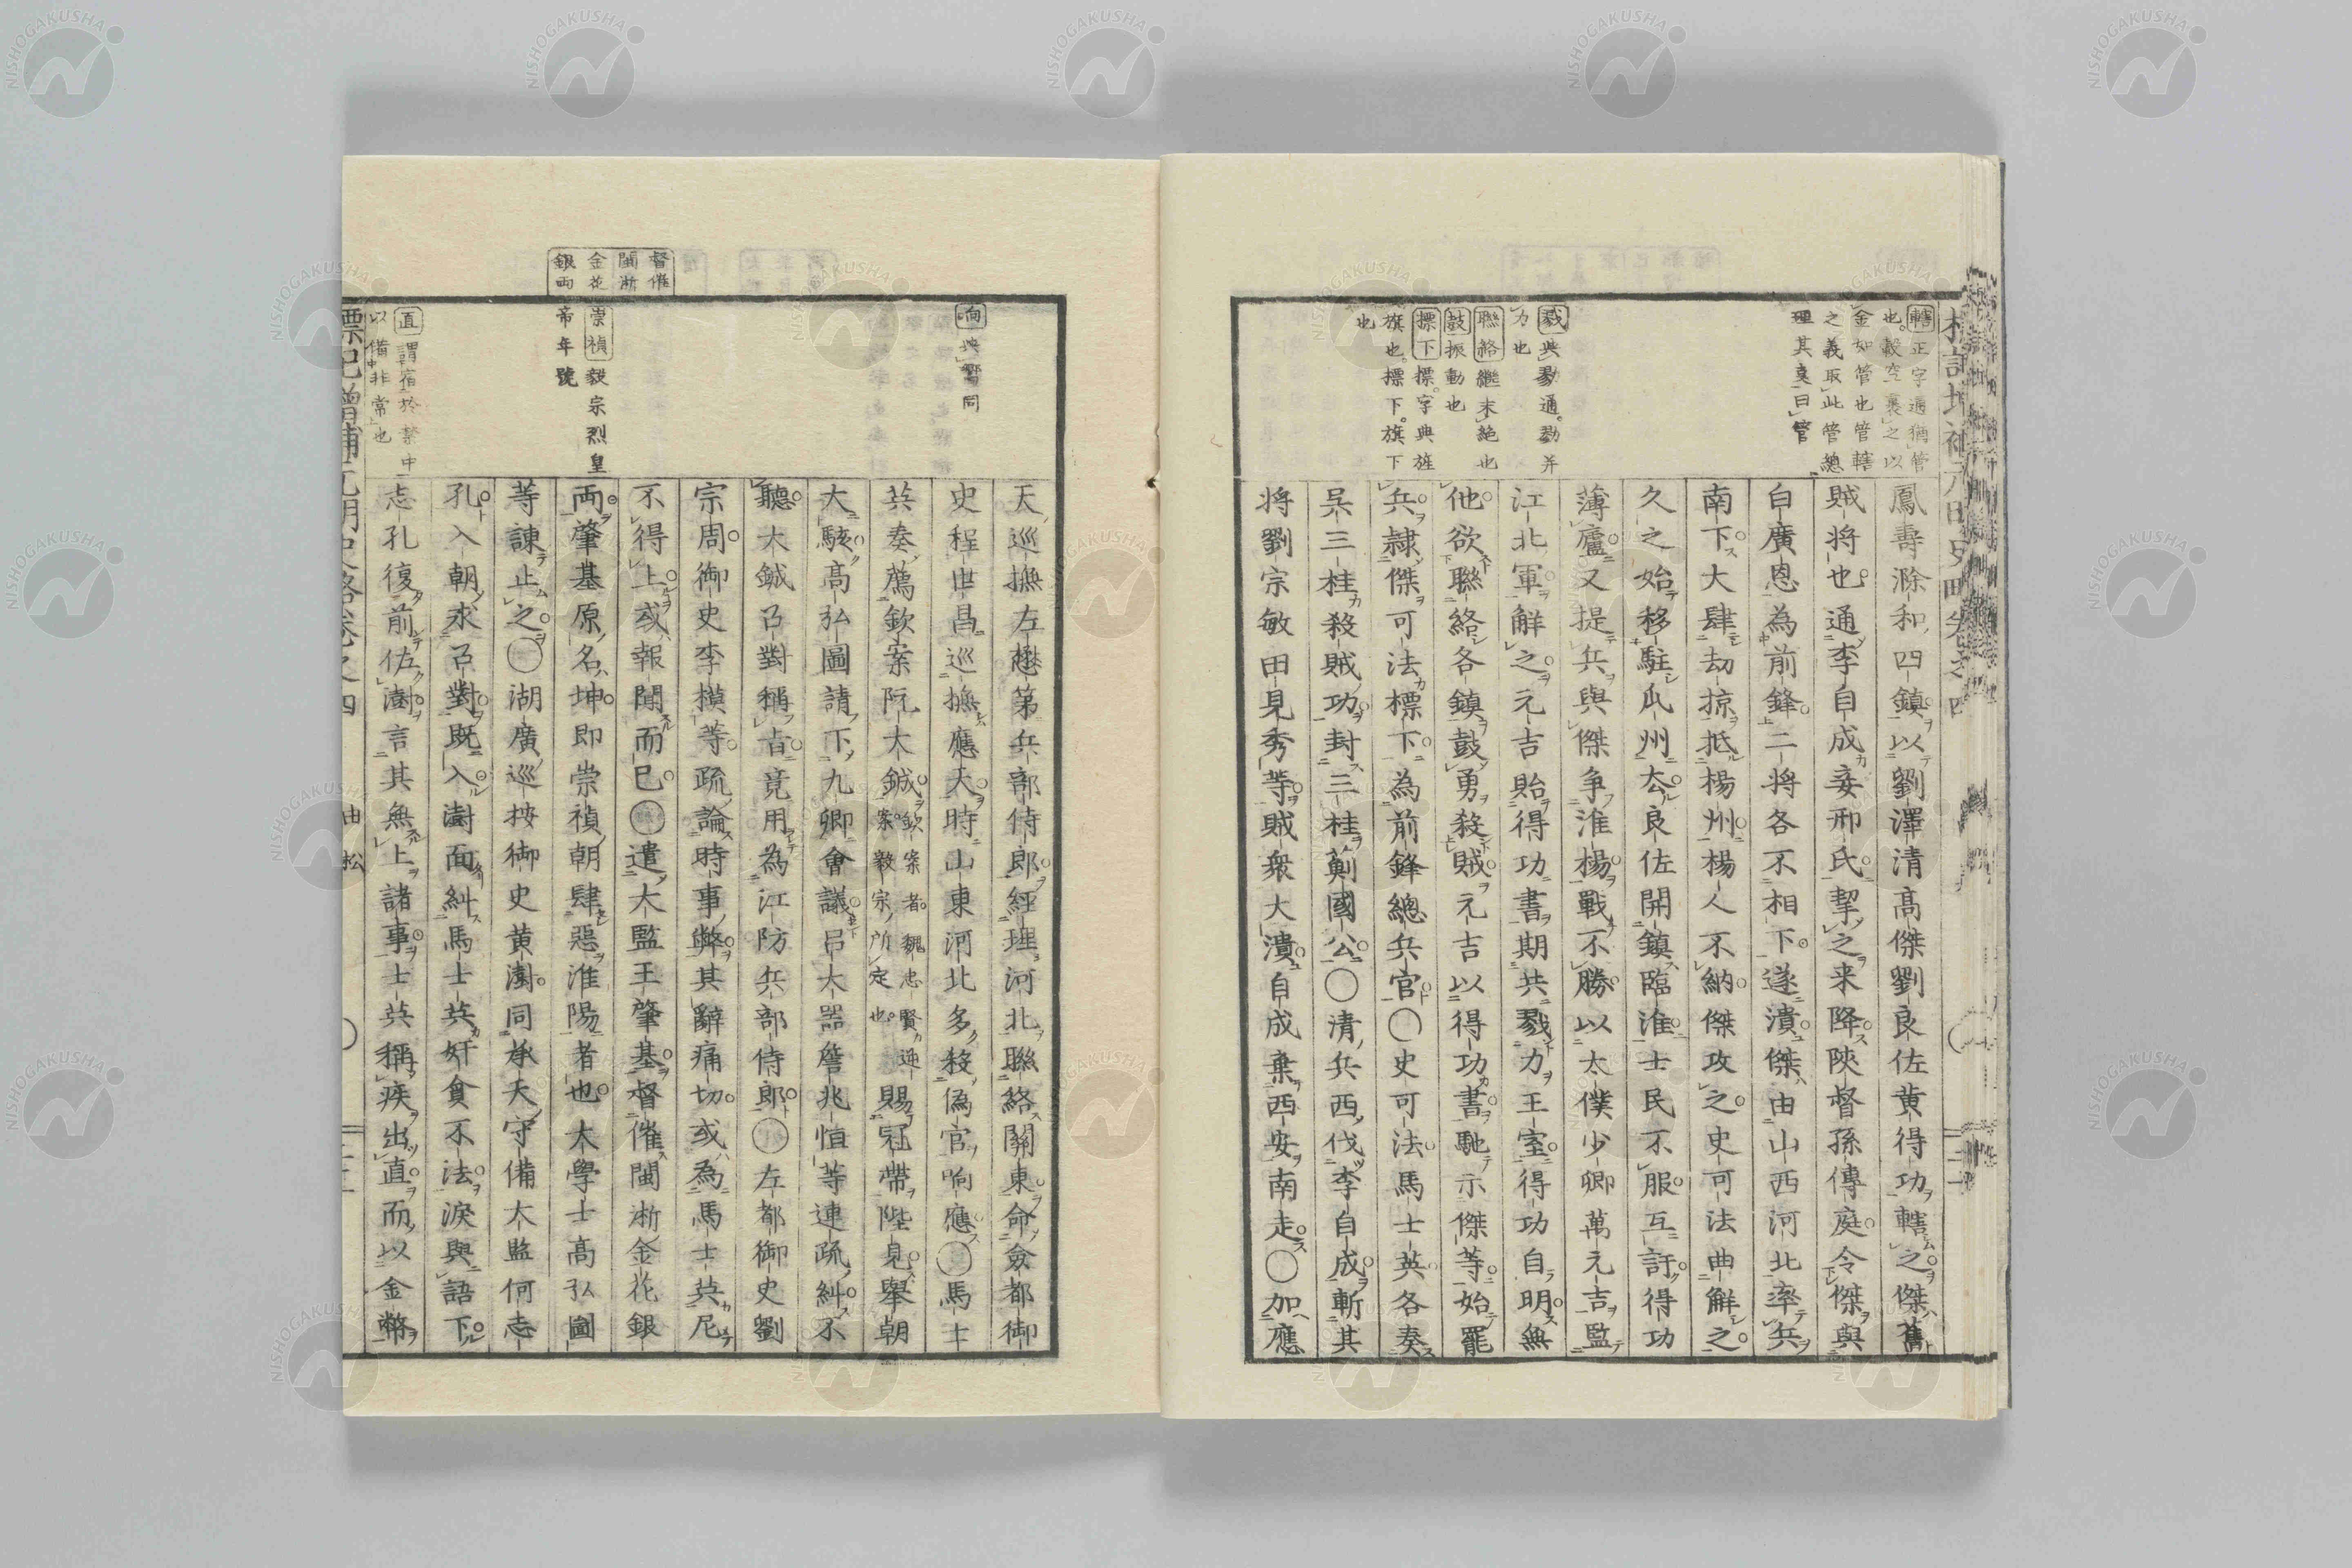 轄正字通猶管
也。轂空裹之以
金如管也管轄
之義取此管總
理其㕝曰管
戮與勠通。勠并
力也
聯絡繼末絶也
鼓振動也
標下標。字典旌
旗也。標下。旗下
也
鳳壽滁和四鎮以劉澤清高傑劉良佐黄得功轄之傑舊
賊将也通李自成妾邢氏挈之来降陝督孫傳庭令傑與
白廣恩為前鋒二将各不相下遂潰傑由山西河北率兵
南下大肆劫掠抵楊州楊人不納傑攻之史可法曲解之
久之始移駐瓜州太良佐開鎮臨淮士民不服互訐得功
薄廬又提兵與傑争淮楊戰不勝以太僕少卿萬元吉監
江北軍解之元吉貽得功書期共戮力王室得功自明無
他欲聯絡各鎮鼓勇殺賊元吉以得功書馳示傑等始罷
兵隷傑可法標下為前鋒總兵官〇史可法馬士英各奏
呉三桂殺賊功封三桂薊國公〇清兵西伐李自成斬其
将劉宗敏田見秀等賊衆大潰自成棄西安南走〇加應
响與嚮同
督催
閩浙
金花
銀両
崇禎毅宗烈皇
帝年號
直謂宿於禁中
以備非常也
天巡撫左懋第兵部侍郎經理河北聯絡關東命僉都御
史程世昌巡撫應天時山東河北多殺偽官响應〇馬士
英奏薦欽案阮大鋮欽案者。魏忠賢逆案毅宗所定也。賜冠帶陛見舉朝
大駭高弘圖請下九卿會議吕大器詹兆恒等連疏糾不
聽大鋮召對稱旨竟用為江防兵部侍郎〇左都御史劉
宗周御史李摸等疏論時事弊其辭痛切或為馬士英尼
不得上或報聞而已〇遣大監王肇基督催閩浙金花銀
両肇基原名坤即崇禎朝肆惡淮陽者也大學士高弘圖
等諌止之〇湖廣巡按御史黄澍同承天守備大監何志
孔入朝求召對既入澍面糾馬士英奸貪不法淚與語下
志孔復前佐澍言其無上諸事士英稱疾出直而以金幣
標記増補元明史略巻之四